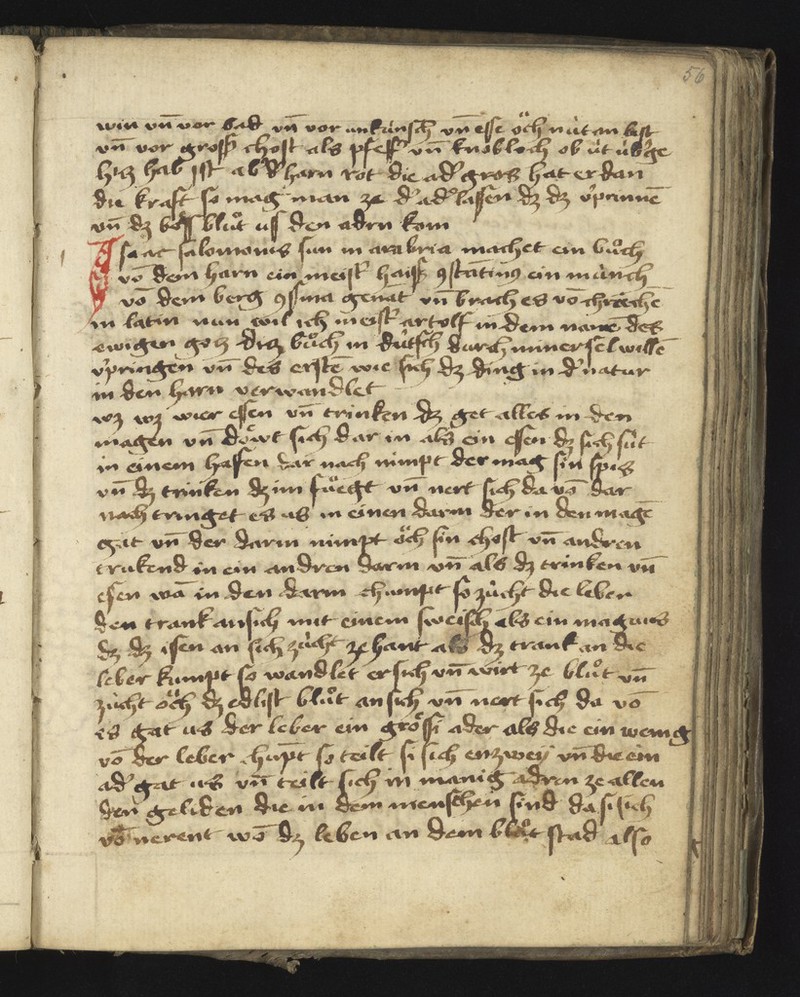 56
win vn̄ vor bad vn̄ vor vnkúnsch vn̄ esse öch nút an bist
vn̄ vor gross chost als pfeff' vn̄ knobloch ob út úb'ge
hiz hab Ist ab' d' harn rot die ad' gros hat er dan
die kraft so mag man ze d' ad' lassen dz dz v'prinnē
vn̄ dz böss blůt uss den adrn kom
Isaac salomonis sun in arabia machet ein bůch
vō dem harn ein meist' haiss 9stātinus ein múnch
vō dem berg 9ssina genāt vn̄ brach es vō chrieche
in latin nun wil ich meist' artolf in dem namē des
ewigen gotz diz bůch in dútsch durch miner sel willē
v'pringen vn̄ des erstē wie sich dz ding in d' natur
in den harn verwandlet
wz wz wier essen vn̄ trinken dz get alles in den
magen vn̄ döwt sich dar in als ein essen dz sich sút
in einem hafen dar nach nimpt der mag sin spis
vn̄ dz trinken dz im fůegt vn̄ nert sich da vō dar
nach tringet es us in einen darm der in den magē
gat vn̄ der darm nimpt öch sin chost vn̄ andren
trukend in ein andren darm vn̄ als dz trinken vn̄
essen wā in den darm chumpt so zúcht die leben
den trank an sich mit einem sweisch als ein magnus
dz dz isen an sich zúcht ze hant als dz trank an die
leber kumpt so wandlet er sich vn̄ wirt ze blůt vn̄
zúcht öch dz edlist blůt an sich vn̄ nert sich da vō
es gat us der leber ein grössi ader als die ein wenig
vō der leber chūpt so teilt si sich enzwey vn̄ die ein
ad' gat us vn̄ teilt sich in manig adren ze allen
den geliden die in dem menschen sind da si sich
vō nerent wō dz leben an dem blůt stad also